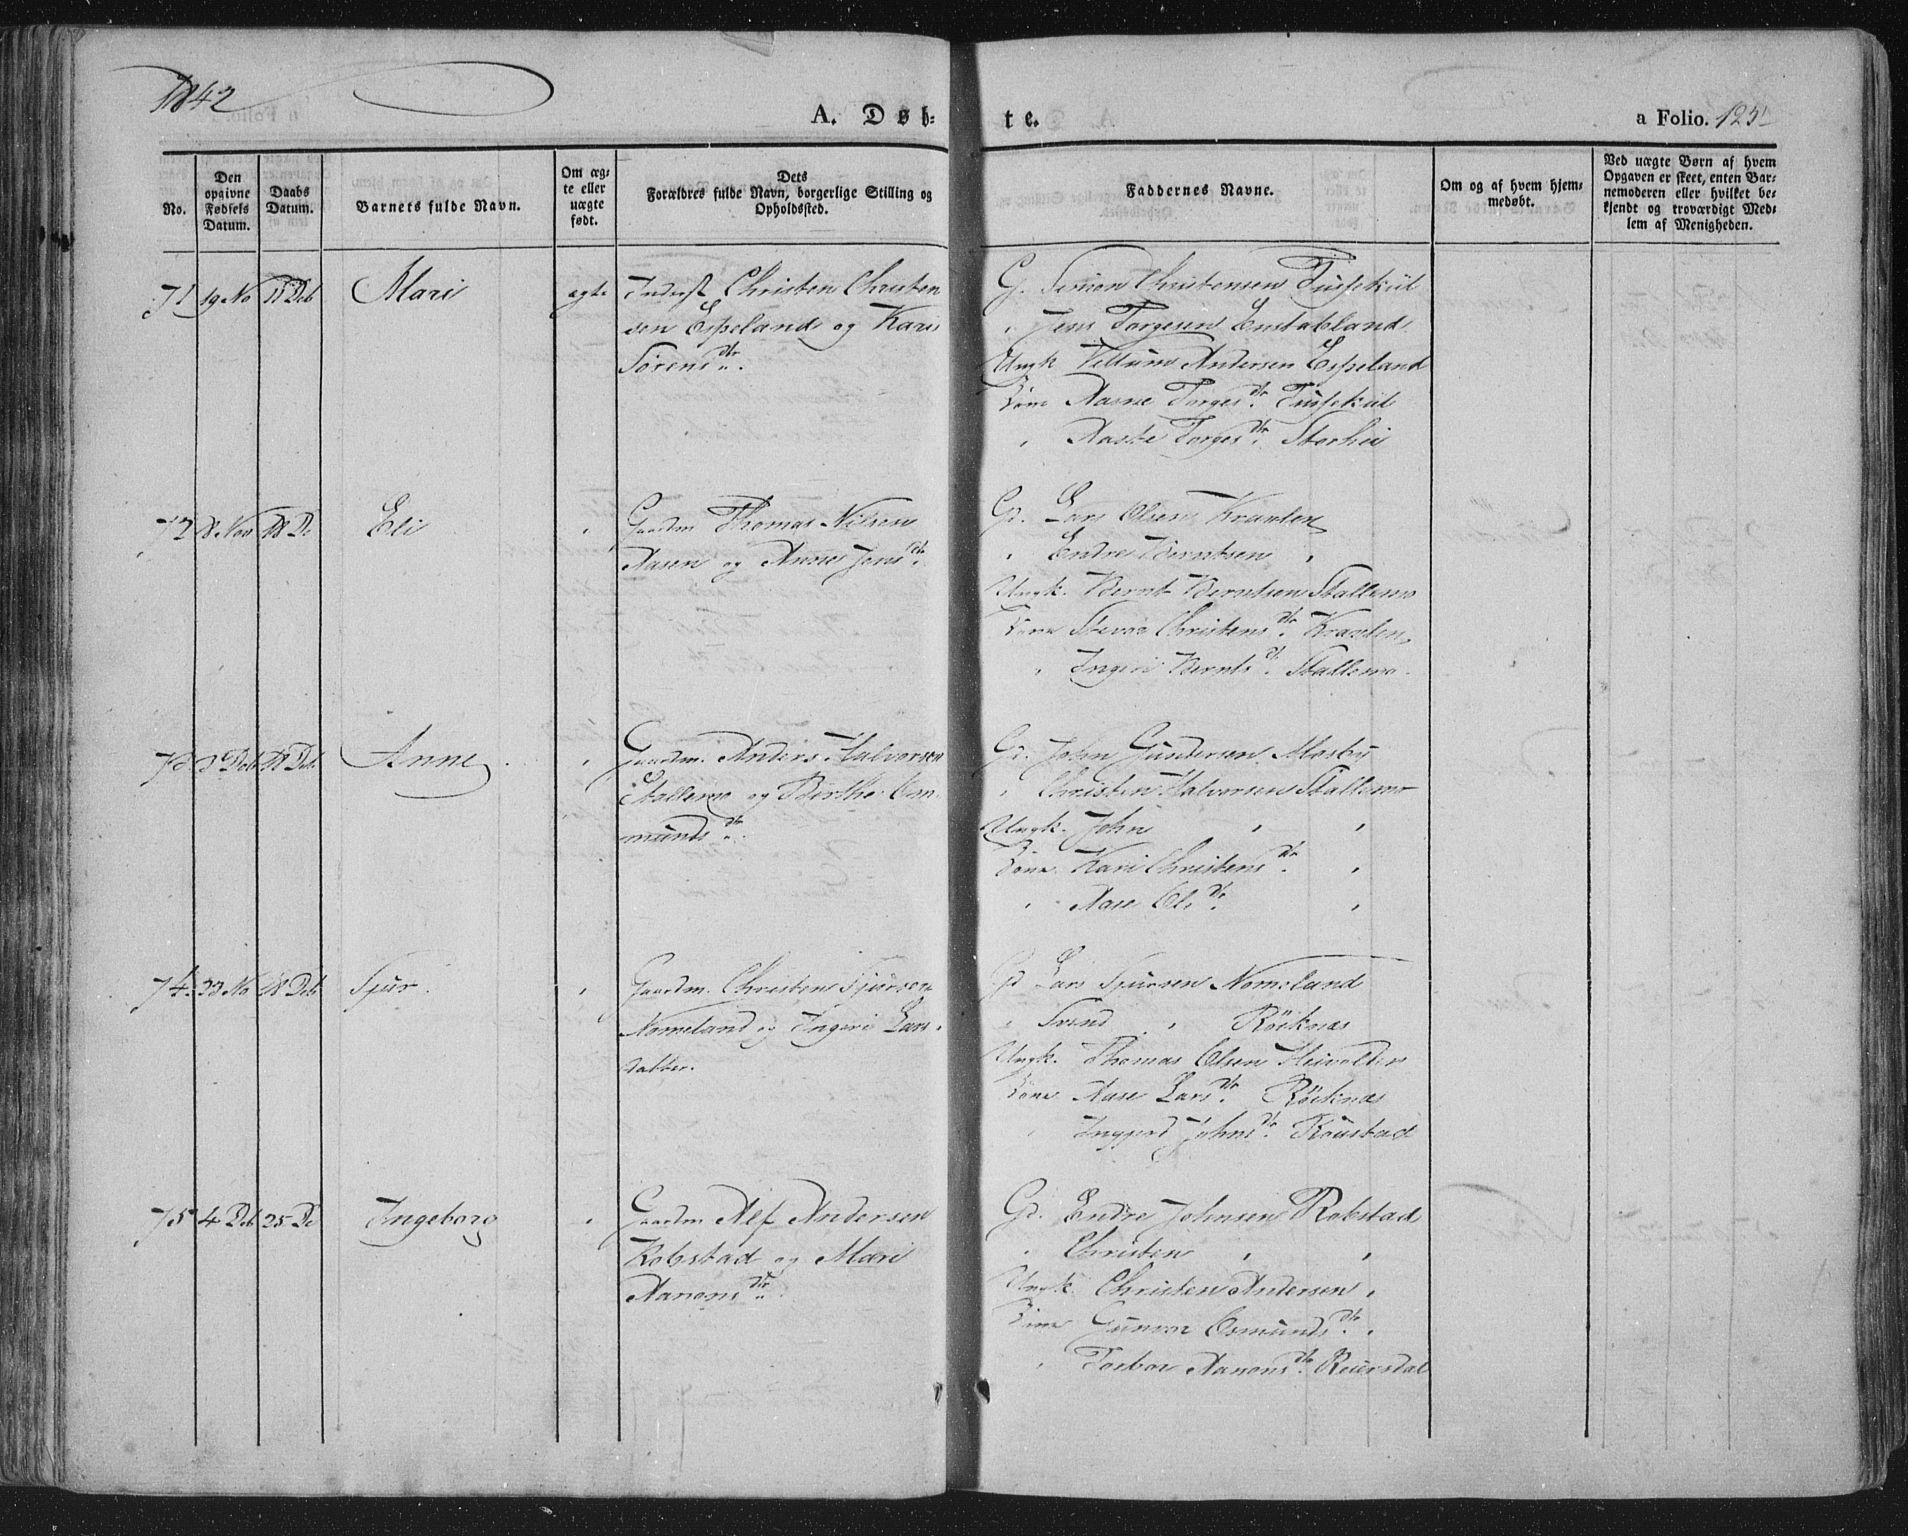 1842
A. Døb- te.
a Folio. 125
No.
Den opgivne Fødsels Datum.
Daabs Datum.
Barnets fulde Navn.
Om æg-
te eller
uægte
født.
Dets
Forældres fulde Navn, borgerlige Stilling og
Opholdssted.
Faddernes Navne.
Om og af hvem hjem-
medøbt.
Ved uægte Børn af hvem
Opgaven er skeet, enten Bar-
nemoderen eller hvilket be-
kjendt og troværdigt Med-
lem af Menigheden.
71 19 No 11 Deb Mari ægte Inderst Christen Christen
sen Espeland og Kari
Sørensdr.
G. Simon Christensen Tussekiil
" Jens Torgesen Enstabland
Ungk Villum Andersen Espeland
Kone Aasne Torgesdr. Tussekiil
" Aaste Torgesdr. Storhei
72 8 Nov 18 De Eli " Gaardm Thomas Nilsen
Aasen og Anne Jensdr.
Gd. Lars Olsen Kravlen
" Endre Berntsen "
Ungk. Bernt Berntsen Stallemo
Kone Christensdr. Kravlen
" Ingeri Berntsd. Stallemo.
73 Deb 18 Deb. Anne " Gaardm. Anders Halvorsen
Stallemo og Berthe Os-
mundsdr.
Gd. John Gundersen Mosby
" Christen Halvorsen Stallemo
Ungk. John " "
Kone Kari Christensdr. "
" Aase Olsdr. "
74. 23 No 18 Deb Sjur. " Gaardm. Christen Sjursen
Nomeland og Ingeri Lars-
datter.
Gd Lars Sjursen Nomeland
" Trend " Röiknæs
Ungk. Thomas Olsen Heivolden
Kone Aase Larsdr. Röiknæs
" Ingjerd Johnsdr. Roustad
75 4 Deb 25 De Ingeborg " Gaardm Alf Andersen
Robstad og Mari
Aanonsdr.
Gd. Endre Johnsen Robstad
" Christen " "
Ungk. Christen Andersen "
Kone Gunvor Osmundsdr. "
" Torbor Aanonsdr. Reiersdal